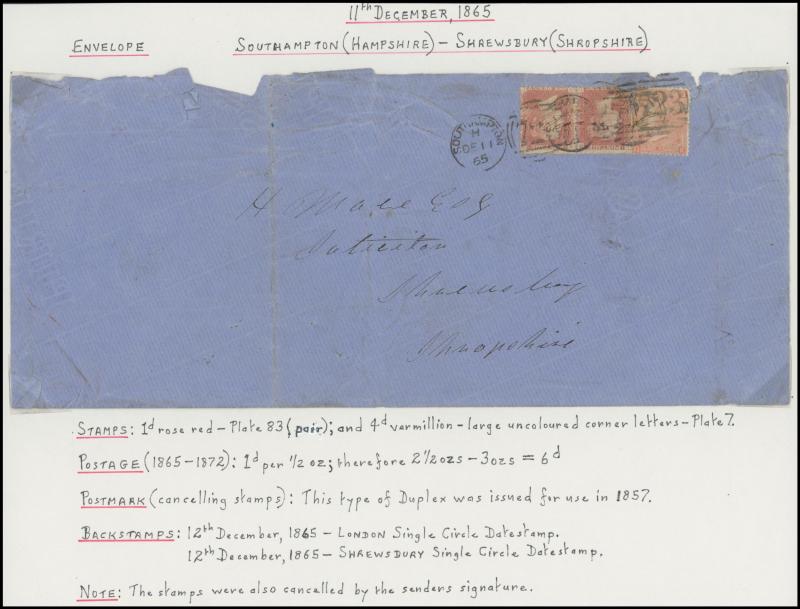 11th DECEMBER, 1865
ENVELOPE SOUTHAMPTON (HAMPSHIRE) – SHREWSBURY (SHROPSHIRE)
SOUTHAMPTON
H
DE 11
65
H Esq
Solicitor
Shrewsbury
Shropshire
STAMPS: 1d rose red – Plate 83 (pair); and 4d vermillion – large uncoloured corner letters – Plate 7.
POSTAGE (1865–1872): 1d per 1/2 oz; therefore 2 1/2 ozs – 3 ozs = 6d
POSTMARK (cancelling stamps): This type of Duplex was issued for use in 1857.
BACKSTAMPS: 12th December, 1865 – LONDON Single Circle Datestamp.
12th December, 1865 – SHREWSBURY Single Circle Datestamp.
NOTE: The stamps were also cancelled by the senders signature.